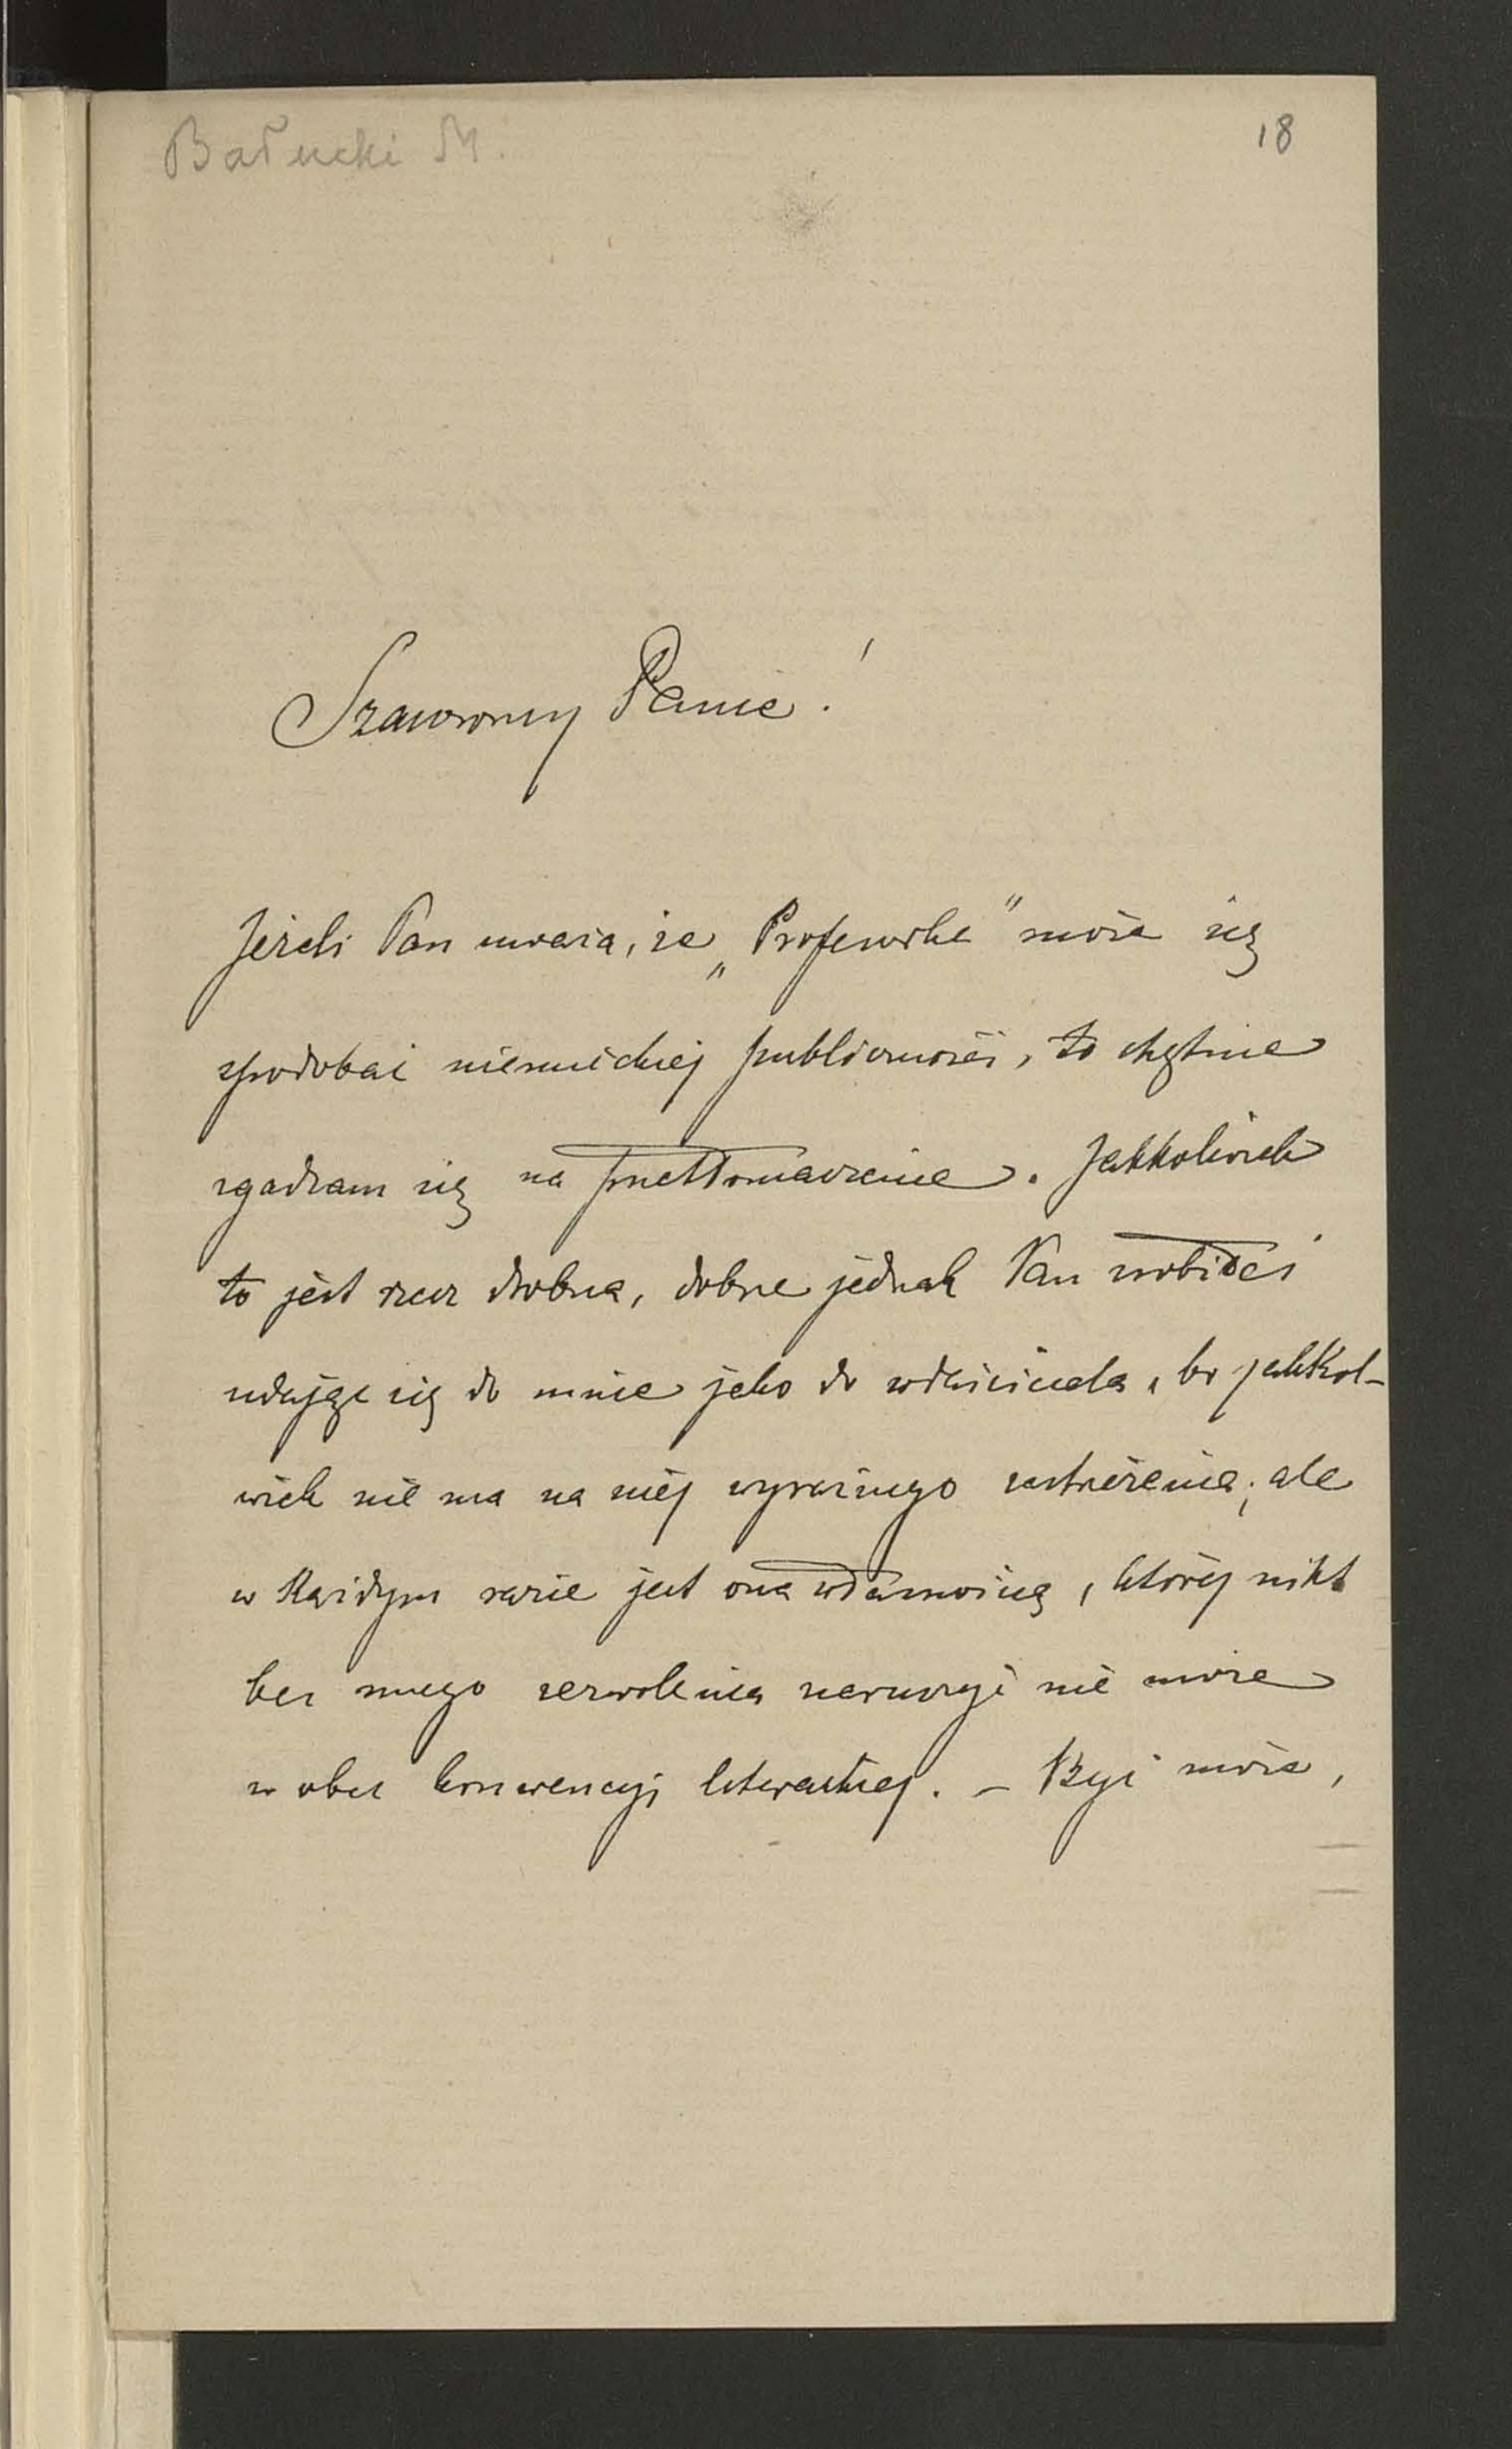 Bałucki M.
18
Szanowny Panie!
Jeżeli Pan uważa, że „Profesorka" może się
spodobać niemieckiej publiczności, to chętnie
zgadzam się na przetłomaczenie. Jakkolwiek
to jest rzecz drobna, dobrze jednak Pan zrobiłeś
udając się do mnie jako do właściciela, bo jakkol-
wiek nie ma na niej wyraźnego zastrzeżenia; ale
w każdym razie jest ona własnością, której nikt
bez mego zezwolenia naruszyć nie może
w obec konwencyi literackiej. – Być może,